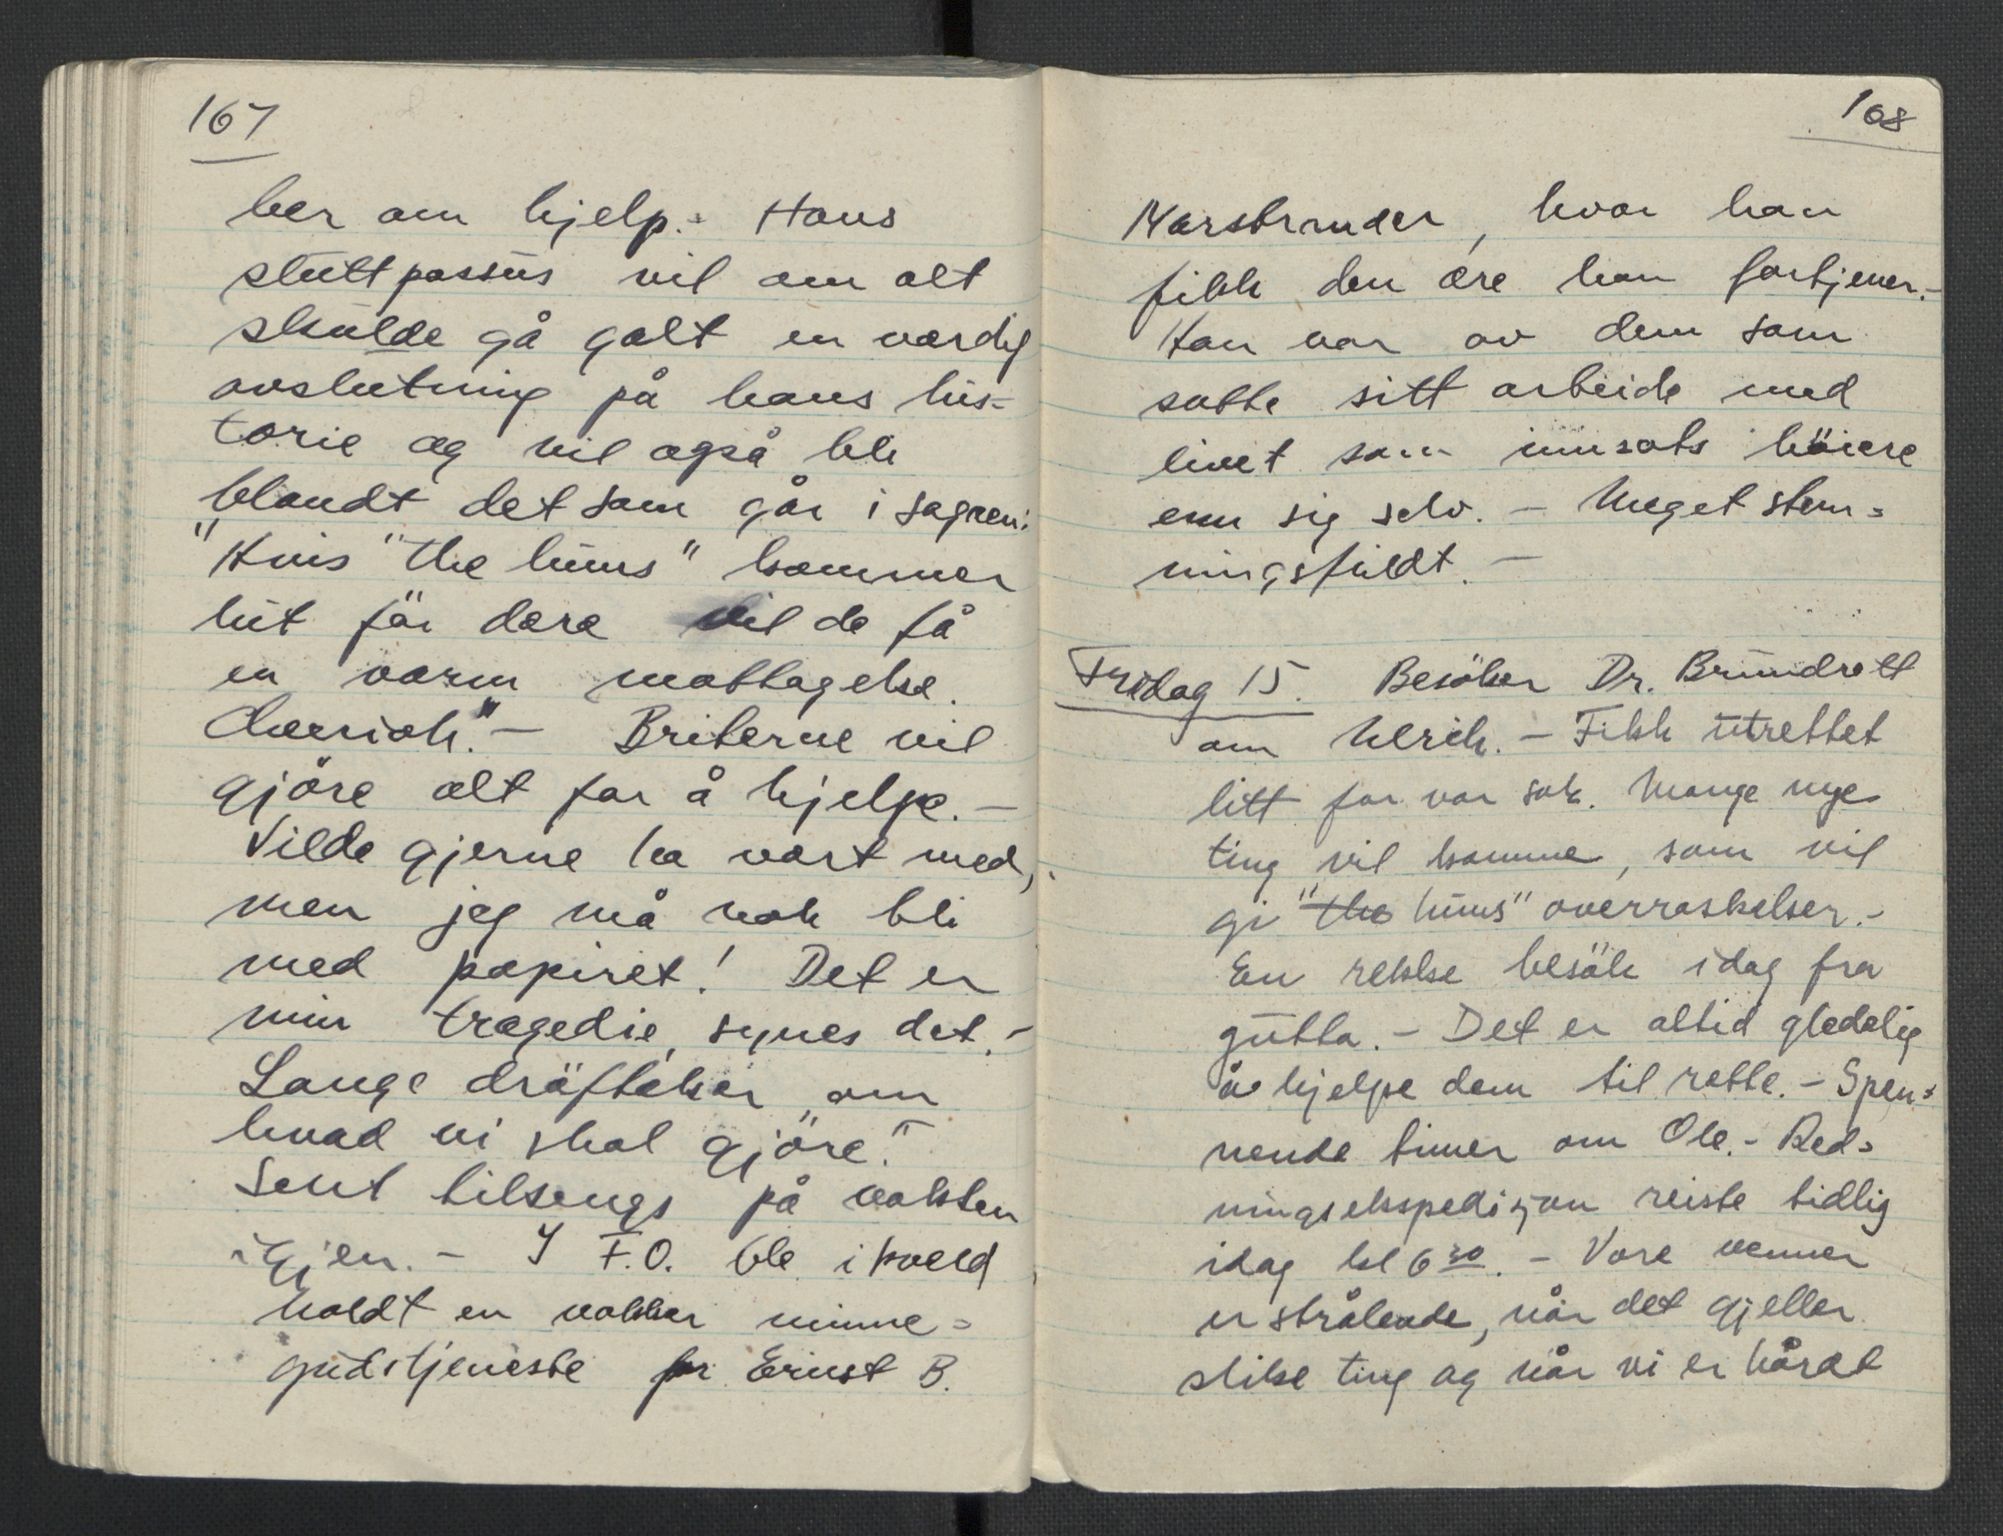 167
ber om hjelp. - Hans
sluttpassus vil om alt
skulde gå galt en verdig
avslutning på hans his-
torie og vil også bli
blandt det som går i sagaen:
"Hvis "the huns" kommer
hit før dere vil de få
en varm mottagelse.
Cheerioh." - Briterne vil
gjöre alt for å hjelpe. -
Vilde gjerne ha vært med,
men jeg må nok bli
med papiret! Det er
min tragedie, synes det. -
Lange dröftelser om
hvad vi skal gjöre. -
Sent tilsengs på vakten
igjen. - I F.O. ble ikveld
holdt en vakker minne-
gudstjeneste for Ernst B.
168
Marstrander, hvor han
fikk den ære han fortjener. -
Han var av dem som
satte sitt arbeide med
livet som innsats höiere
enn sig selv. - Meget stem-
ningsfuldt. -
Fredag 15. Besöker Dr. Brundrett
om Ulrik. - Fikk utrettet
litt for vor sak. Mange nye
ting vil komme, som vil
gi "the huns" overraskelser. -
En rekke besök idag fra
gutta. - Det er altid gledelig
å hjelpe dem til rette. - Spen-
nende timer om Ole. - Red-
ningsekspedisjon reiste tidlig
idag kl 6 30. - Vore venner
er strålende, når det gjeller
slike ting og når vi er hårdt